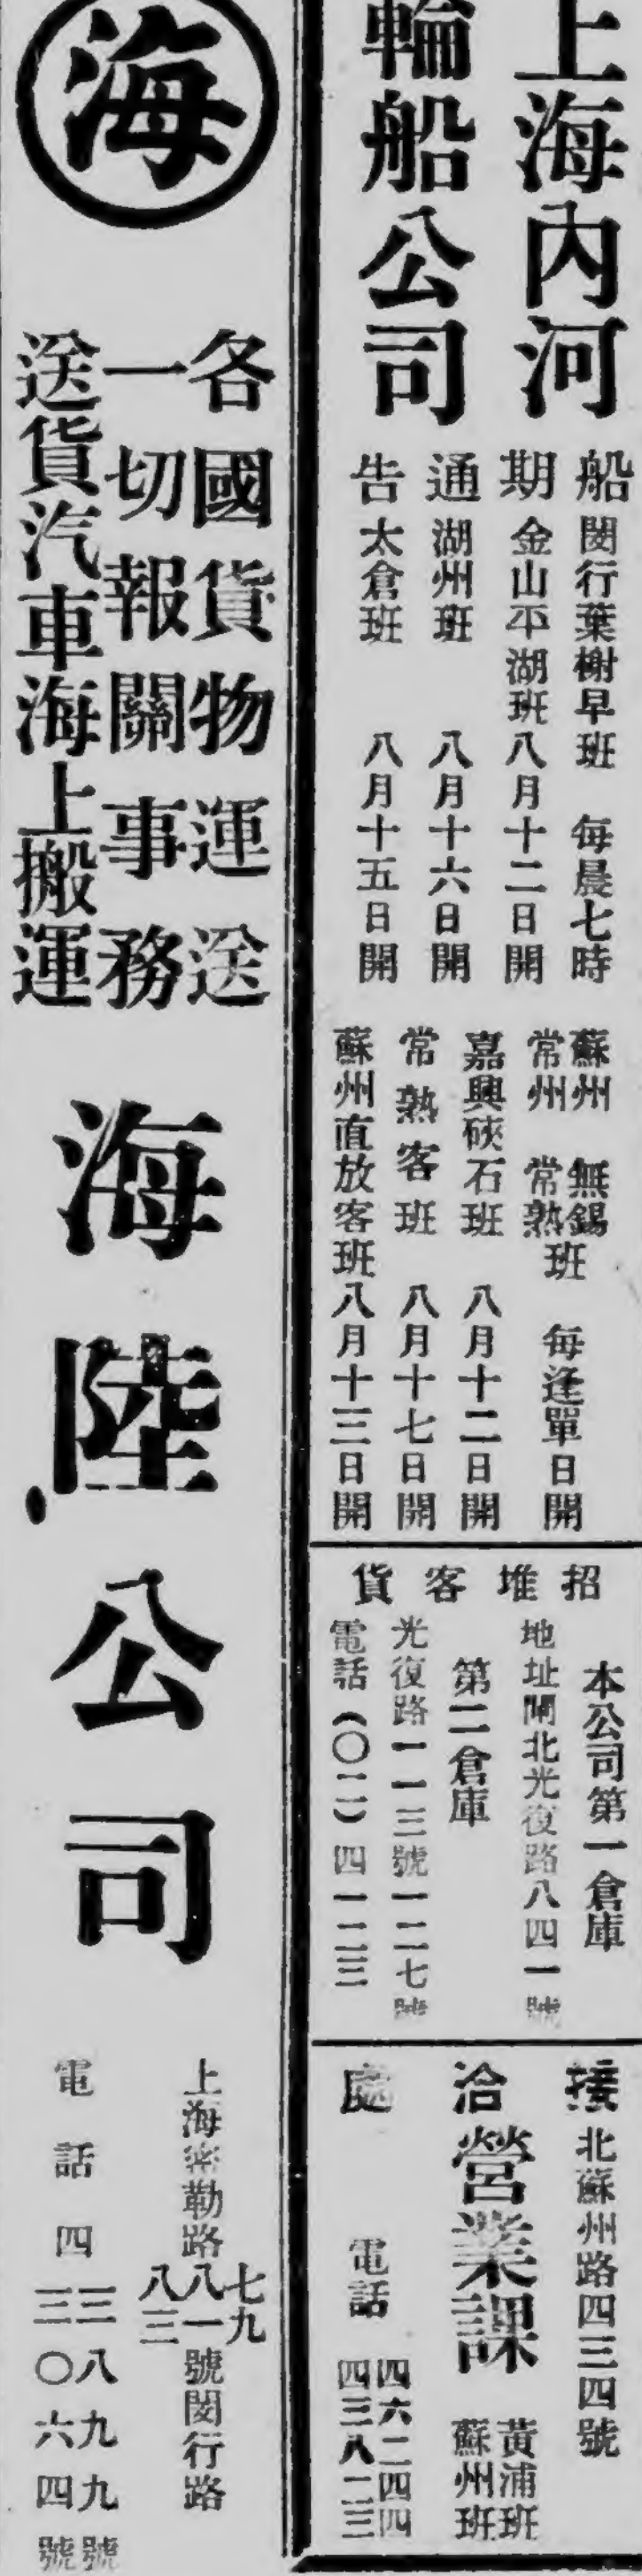 上海內河
輪船公司
船期通告
閔行葉榭早班 每晨七時
金山平湖班 八月十二日開
湖州班 八月十六日開
太倉班 八月十五日開
蘇州 無錫
常州 常熟
班 每逢單日開
嘉興硤石班 八月十二日開
常熟客班 八月十七日開
蘇州直放客班 八月十三日開
招堆客貨
本公司第一倉庫
地址閘北光復路八四一號
第二倉庫
光復路一一三號一二七號
電話(〇二)四一二三
接洽處
北蘇州路四三四號
營業課
黃浦班
蘇州班
電話
四六二四四
四三八二三
海
各國貨物運送
一切報關事務
送貨汽車海上搬運
海陸公司
上海密勒路
七九
八一
八三
號閔行路
電話四
三八九九號
三〇六四號